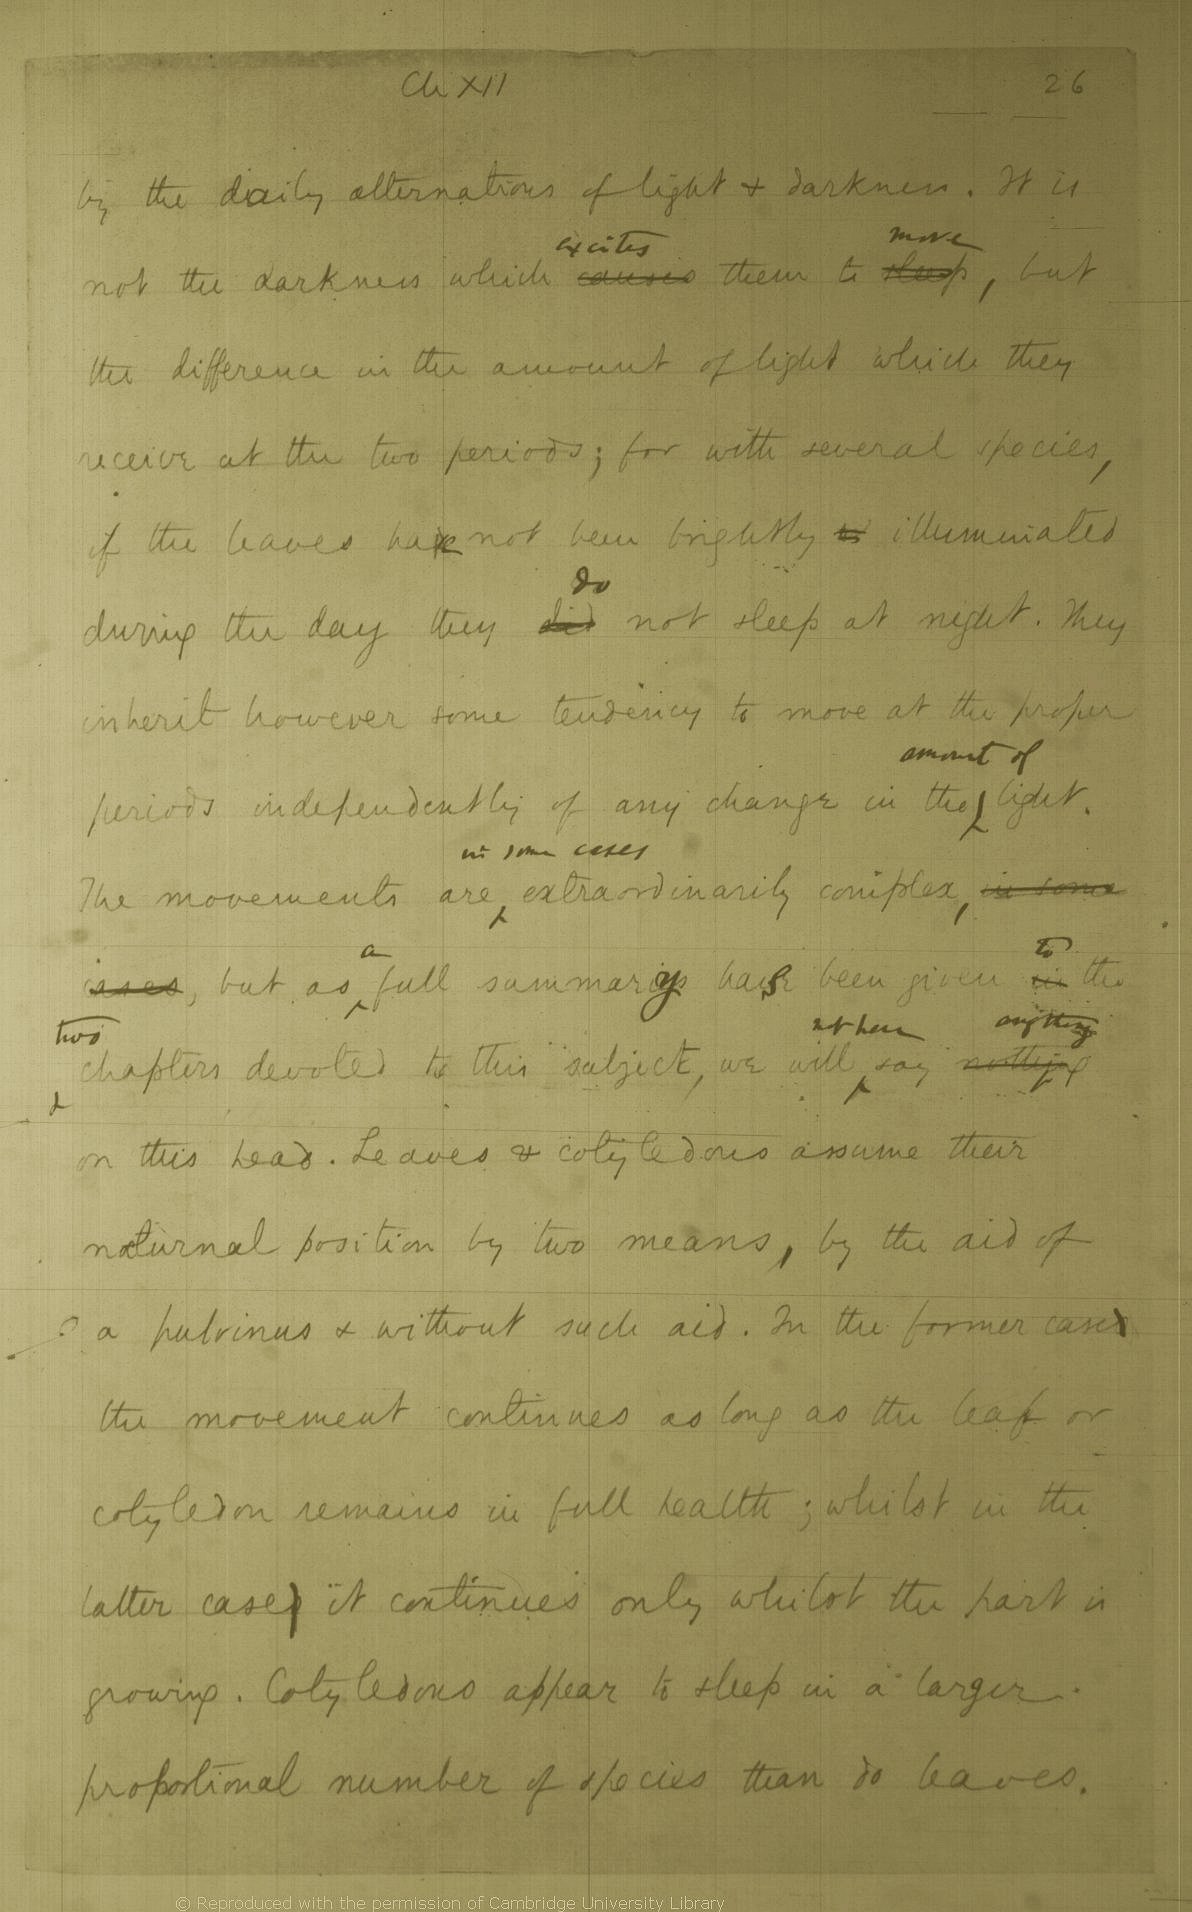 Ch XII 26
by the daily alternations of light & darkness. It is
excites move
not the darkness which causes them to sleep, but
the difference in the amount of light which they
receive at the two periods; for with several species,
if the leaves have not been brightly illuminated
do
during the day they did not sleep at night. They
inherit however some tendency to move at the proper
amount of
periods independently of any change in the light.
in some cases
The movements are extraordinarily complex, in some
a to
cases, but as full summary has been given in the
two not here anything
chapters devoted to this subject, we will say nothing
on this head. Leaves & cotyledons assume their
nocturnal position by two means, by the aid of
a pulvinus & without such aid. In the former case
the movement continues as long as the leaf or
cotyledon remains in full health; whilst in the
latter case it continues only whilst the part is
growing. Cotyledons appear to sleep in a larger
proportional number of species than do leaves.
© Reproduced with the permission of Cambridge University Library